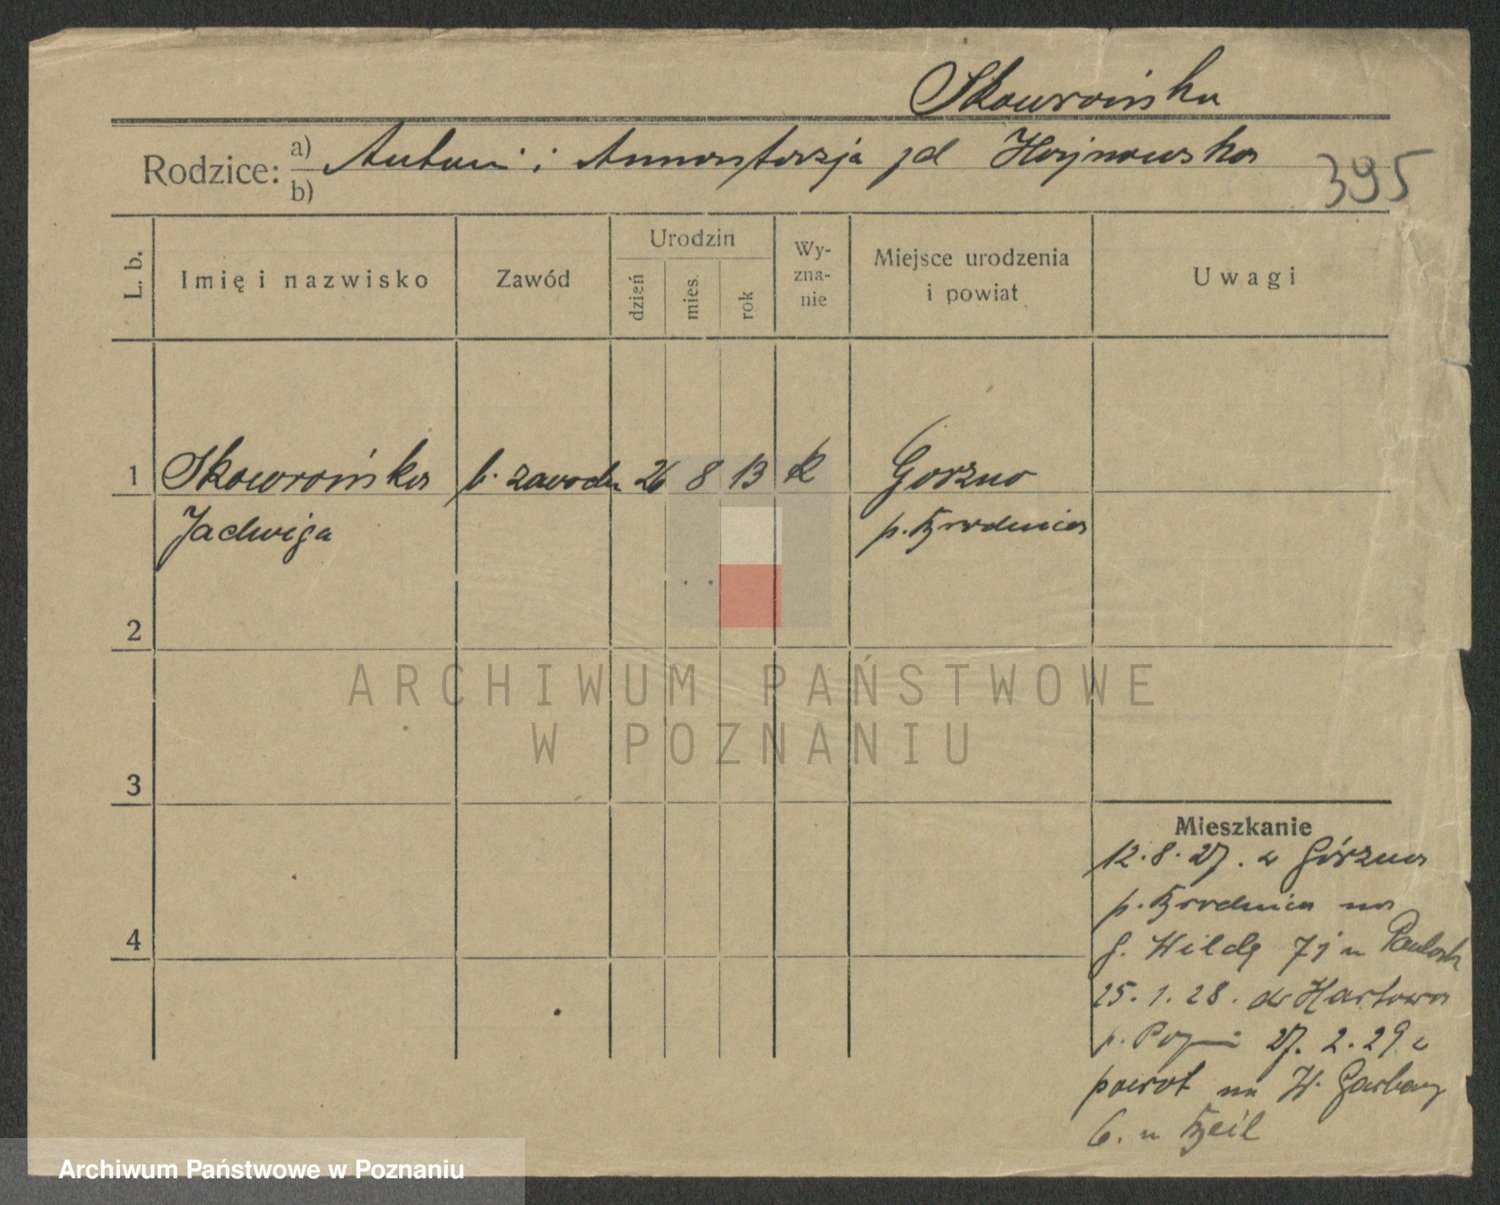 Skowrońska
Rodzice: a) Antoni i Anastazja zd Hojnowska
b)
395
L. b.
Imię i nazwisko
Zawód
Urodzin
dzień
mies.
rok
Wy-
zna-
nie
Miejsce urodzenia
i powiat
Uwagi
1 Skowrońska b. zawodu 26 8 13 k Gorzno
Jadwiga p. Brodnica
2
ARCHIWUM PAŃSTWOWE
W POZNANIU
3
Mieszkanie
12.8.27. z Górzna
p. Brodnica na
G. Wildę 71 u
25.1.28. do Hartowa
p. 27.2.29 z
4
powrot na W. Garbary
6. u Beil
Archiwum Państwowe w Poznaniu